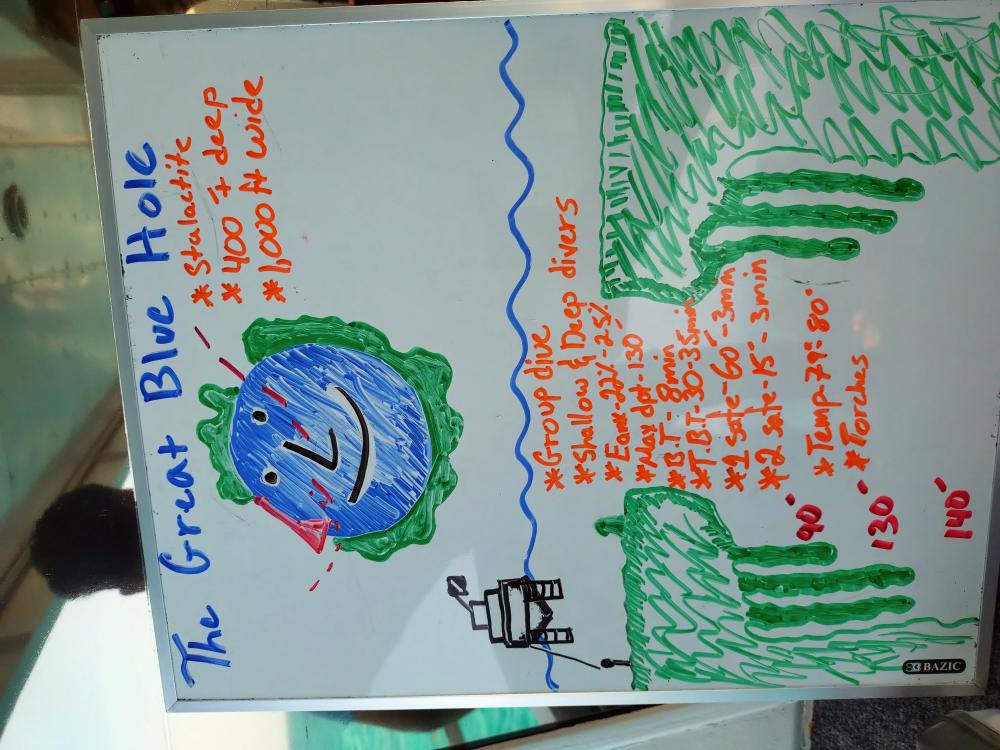 The Great Blue Hole
* Stalactite
* 400 + deep
* 1,000 ft wide
* Group dive
* Shallow & Deep divers
* Max dpt-130
* B.T - 8min
* T.B.T-30-35min
* 1 safe-60'-3min
* 2 safe-15'-3min
* Temp-79°-80°
* Torches
90'
130'
140'
BAZIC